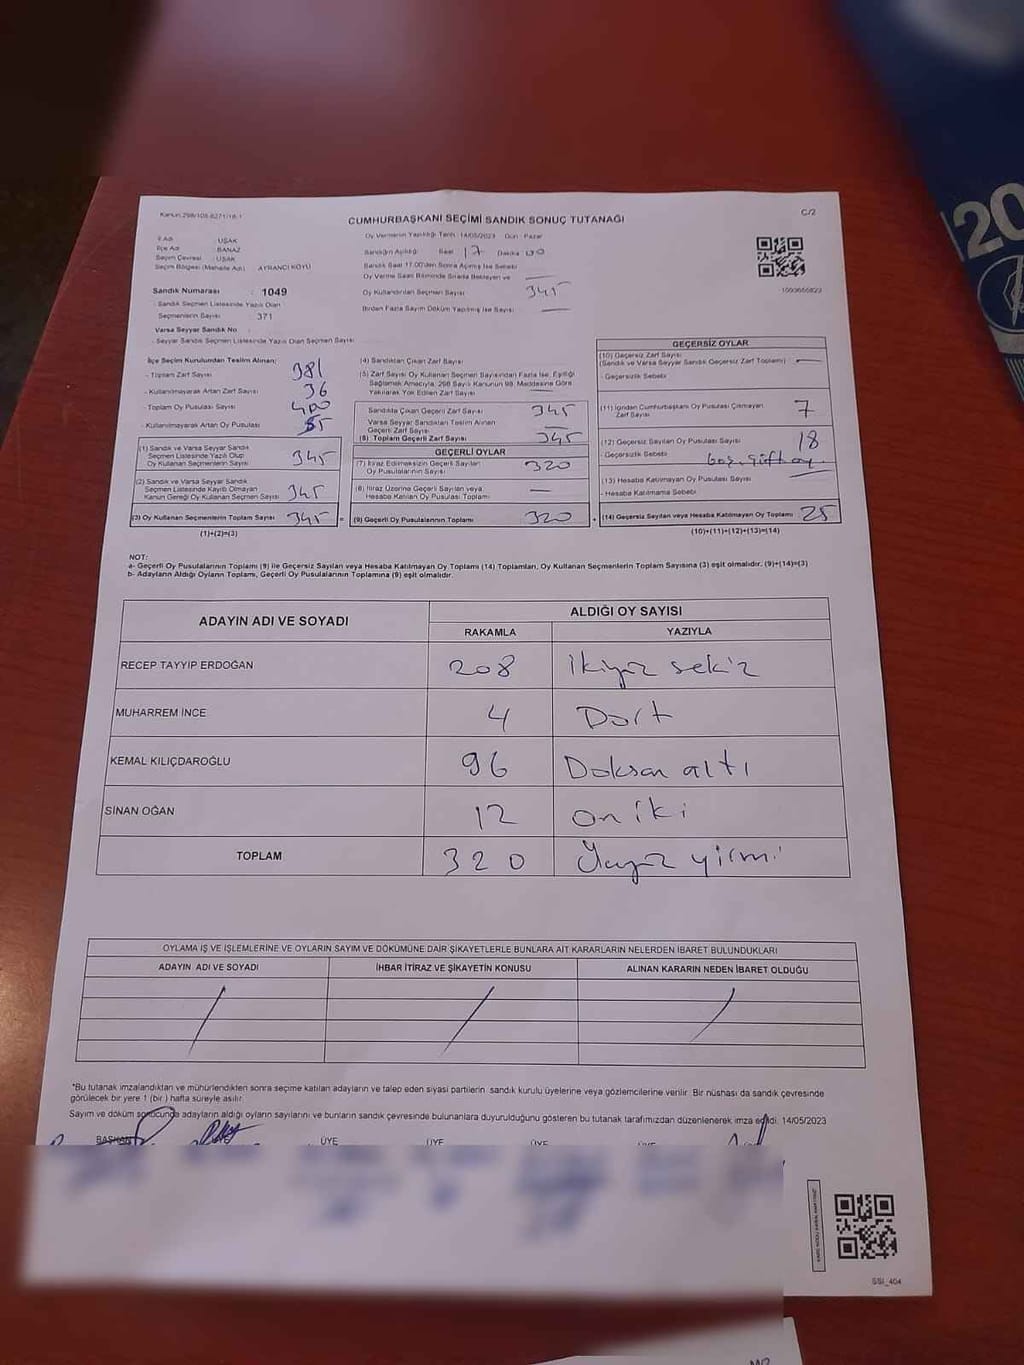 Kanun:298/105-6271/16-1
C/2
CUMHURBAŞKANI SEÇİMİ SANDIK SONUÇ TUTANAĞI
İl Adı : UŞAK
İlçe Adı : BANAZ
Seçim Çevresi : UŞAK
Seçim Bölgesi (Mahalle Adı) : AYRANCI KÖYÜ
Sandık Numarası : 1049
Sandık Seçmen Listesinde Yazılı Olan
Seçmenlerin Sayısı : 371
Varsa Seyyar Sandık No
Seyyar Sandık Seçmen Listesinde Yazılı Olan Seçmen Sayısı
Oy Vermenin Yapıldığı Tarih : 14/05/2023 Gün : Pazar
Sandığın Açıldığı Saat 17 Dakika 00
Sandık Saat 17.00'den Sonra Açılmış İse Sebebi
Oy Verme Saati Bitiminde Sırada Bekleyen ve
Oy Kullandırılan Seçmen Sayısı 345
Birden Fazla Sayım Döküm Yapılmış İse Sayısı
İlçe Seçim Kurulundan Teslim Alınan;
- Toplam Zarf Sayısı 381
- Kullanılmayarak Artan Zarf Sayısı 36
- Toplam Oy Pusulası Sayısı 400
- Kullanılmayarak Artan Oy Pusulası 55
(1) Sandık ve Varsa Seyyar Sandık
Seçmen Listesinde Yazılı Olup
Oy Kullanan Seçmenlerin Sayısı 345
(2) Sandık ve Varsa Seyyar Sandık
Seçmen Listesinde Kayıtlı Olmayan
Kanun Gereği Oy Kullanan Seçmen Sayısı 345
(3) Oy Kullanan Seçmenlerin Toplam Sayısı 345 =
(1)+(2)=(3)
(4) Sandıktan Çıkan Zarf Sayısı
(5) Zarf Sayısı Oy Kullanan Seçmen Sayısından Fazla İse, Eşitliği
Sağlamak Amacıyla, 298 Sayılı Kanunun 98. Maddesine Göre
Yakılarak Yok Edilen Zarf Sayısı
Sandıkta Çıkan Geçerli Zarf Sayısı 345
Varsa Seyyar Sandıktan Teslim Alınan
Geçerli Zarf Sayısı
(6) Toplam Geçerli Zarf Sayısı 345
GEÇERLİ OYLAR
(7) İtiraz Edilmeksizin Geçerli Sayılan
Oy Pusulalarının Sayısı 320
(8) İtiraz Üzerine Geçerli Sayılan veya
Hesaba Katılan Oy Pusulası Toplamı
(9) Geçerli Oy Pusulalarının Toplamı 320 +
GEÇERSİZ OYLAR
(10) Geçersiz Zarf Sayısı
(Sandık ve Varsa Seyyar Sandık Geçersiz Zarf Toplamı)
- Geçersizlik Sebebi
(11) İçinden Cumhurbaşkanı Oy Pusulası Çıkmayan
Zarf Sayısı 7
(12) Geçersiz Sayılan Oy Pusulası Sayısı 18
- Geçersizlik Sebebi boş. çift oy
(13) Hesaba Katılmayan Oy Pusulası Sayısı
- Hesaba Katılmama Sebebi
(14) Geçersiz Sayılan veya Hesaba Katılmayan Oy Toplamı 25
(10)+(11)+(12)+(13)=(14)
NOT:
a- Geçerli Oy Pusulalarının Toplamı (9) ile Geçersiz Sayılan veya Hesaba Katılmayan Oy Toplamı (14) Toplamları, Oy Kullanan Seçmenlerin Toplam Sayısına (3) eşit olmalıdır. (9)+(14)=(3)
b- Adayların Aldığı Oyların Toplamı, Geçerli Oy Pusulalarının Toplamına (9) eşit olmalıdır.
ADAYIN ADI VE SOYADI ALDIĞI OY SAYISI
RAKAMLA YAZIYLA
RECEP TAYYIP ERDOĞAN 208 ikiyüz sekiz
MUHARREM İNCE 4 Dört
KEMAL KILIÇDAROĞLU 96 Doksan altı
SİNAN OĞAN 12 on iki
TOPLAM 320 Üçyüz yirmi
OYLAMA İŞ VE İŞLEMLERİNE VE OYLARIN SAYIM VE DÖKÜMÜNE DAİR ŞİKAYETLERLE BUNLARA AİT KARARLARIN NELERDEN İBARET BULUNDUKLARI
ADAYIN ADI VE SOYADI İHBAR İTİRAZ VE ŞİKAYETİN KONUSU ALINAN KARARIN NEDEN İBARET OLDUĞU
*Bu tutanak imzalandıktan ve mühürlendikten sonra seçime katılan adayların ve talep eden siyasi partilerin sandık kurulu üyelerine veya gözlemcilerine verilir. Bir nüshası da sandık çevresinde
görülecek bir yere 1 (bir) hafta süreyle asılır.
Sayım ve döküm sonucunda adayların aldığı oyların sayılarını ve bunların sandık çevresinde bulunanlara duyurulduğunu gösteren bu tutanak tarafımızdan düzenlenerek imza edildi. 14/05/2023
BAŞKAN ÜYE ÜYE ÜYE
SSI_404
20